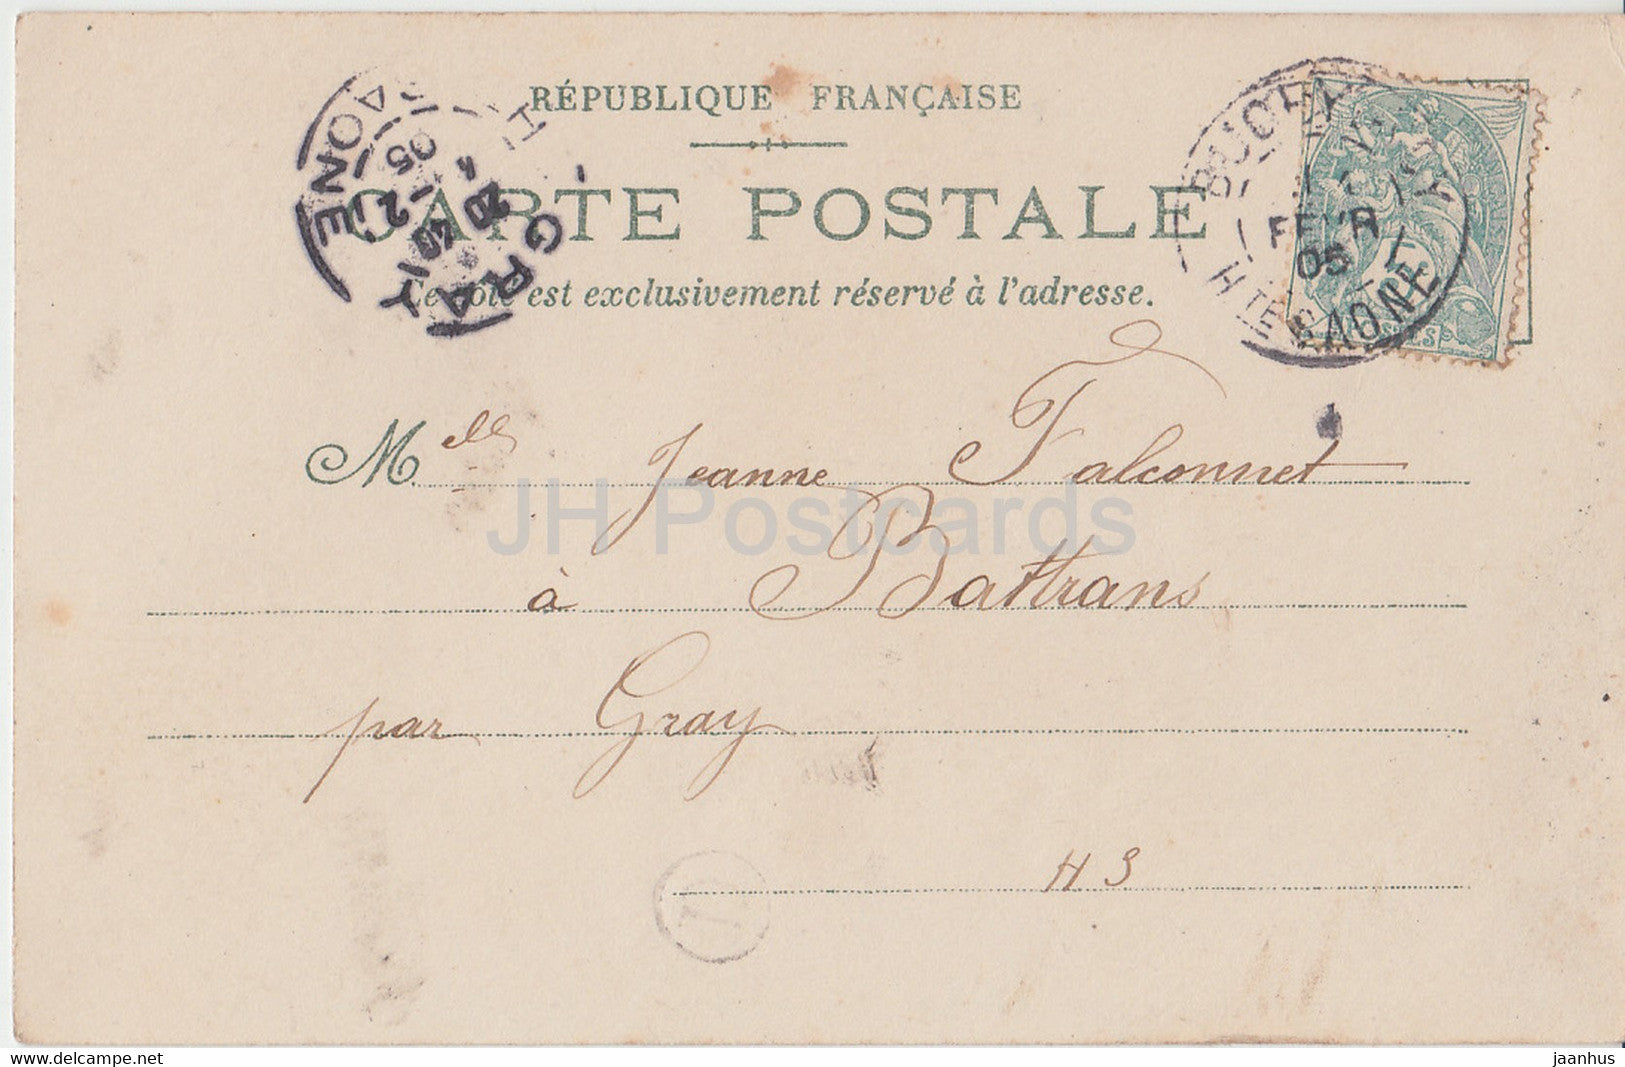 RÉPUBLIQUE FRANÇAISE
CARTE POSTALE
Ce côté est exclusivement réservé à l'adresse.
GRAY
20
20 -2
05
SAONE
FEVR
05
HTE SAONE
Melle Jeanne Falconnet
JH Postcards
à Battrans
par Gray
H S
delcampe.net
jaanhus